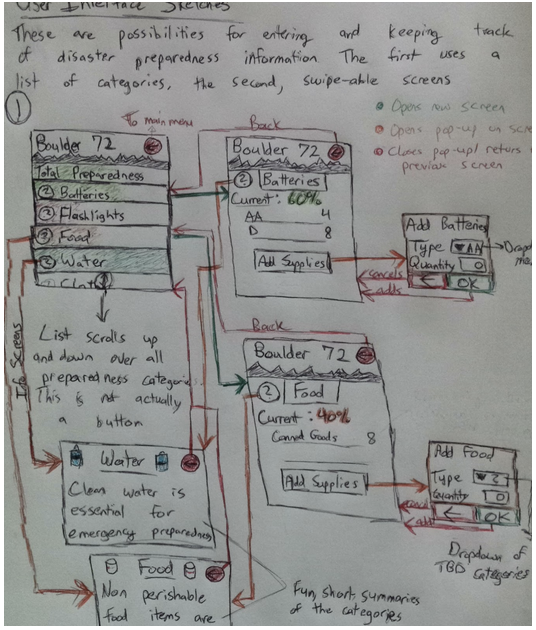 User Interface Sketches
These are possibilities for entering and keeping track
of disaster preparedness information The first uses a
list of categories, the second, swipe-able screens
1
Opens new screen
Opens pop-up on scre
Closes pop-up/ return
previous screen
To main menu
Back
Boulder 72
Total Preparedness
? Batteries
? Flashlights
? Food
? Water
Boulder 72
? Batteries
Current: 60%
AA 4
D 8
Add Supplies
Add Batteries
Type AA
Quantity 0
← OK
Dropd
cancels
adds
List scrolls up
and down over all
preparedness categories.
This is not actually
a button
Info Screens
Back
Boulder 72
? Food
Current: 40%
Canned Goods 8
Add Supplies
Add Food
Type ?
Quantity 0
← OK
cancels
adds
Dropdown of
TBD categories
Water
Clean water is
essential for
emergency preparedness
Food
Non perishable
food items are
Fun, short, summaries
of the categories